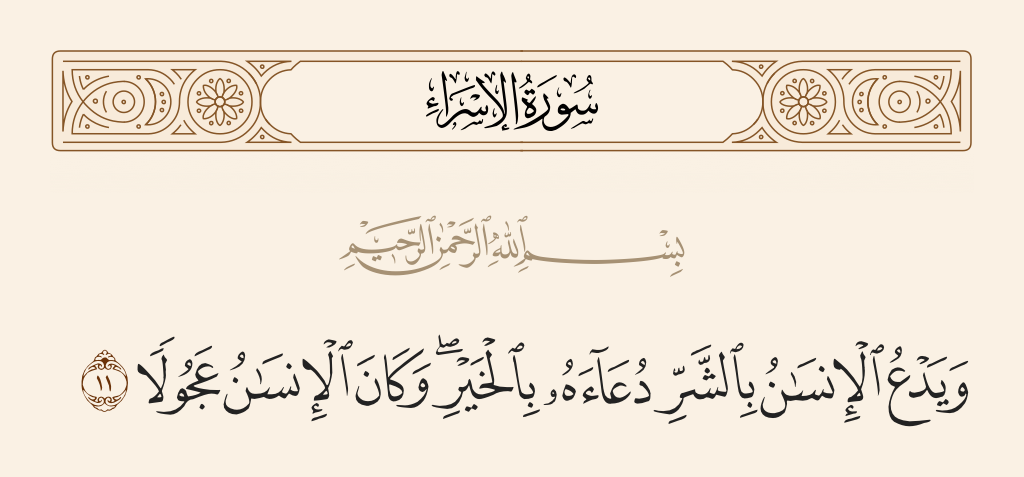 سُورَةُ الإِسْرَاءِ
بِسْمِ ٱللَّهِ ٱلرَّحْمَٰنِ ٱلرَّحِيمِ
وَيَدْعُ ٱلْإِنسَٰنُ بِٱلشَّرِّ دُعَآءَهُۥ بِٱلْخَيْرِ ۖ وَكَانَ ٱلْإِنسَٰنُ عَجُولًا ١١